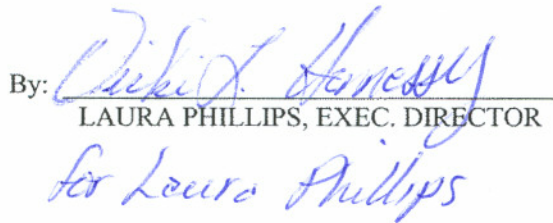 By: Vicki L. Hennessy
LAURA PHILLIPS, EXEC. DIRECTOR
for Laura Phillips